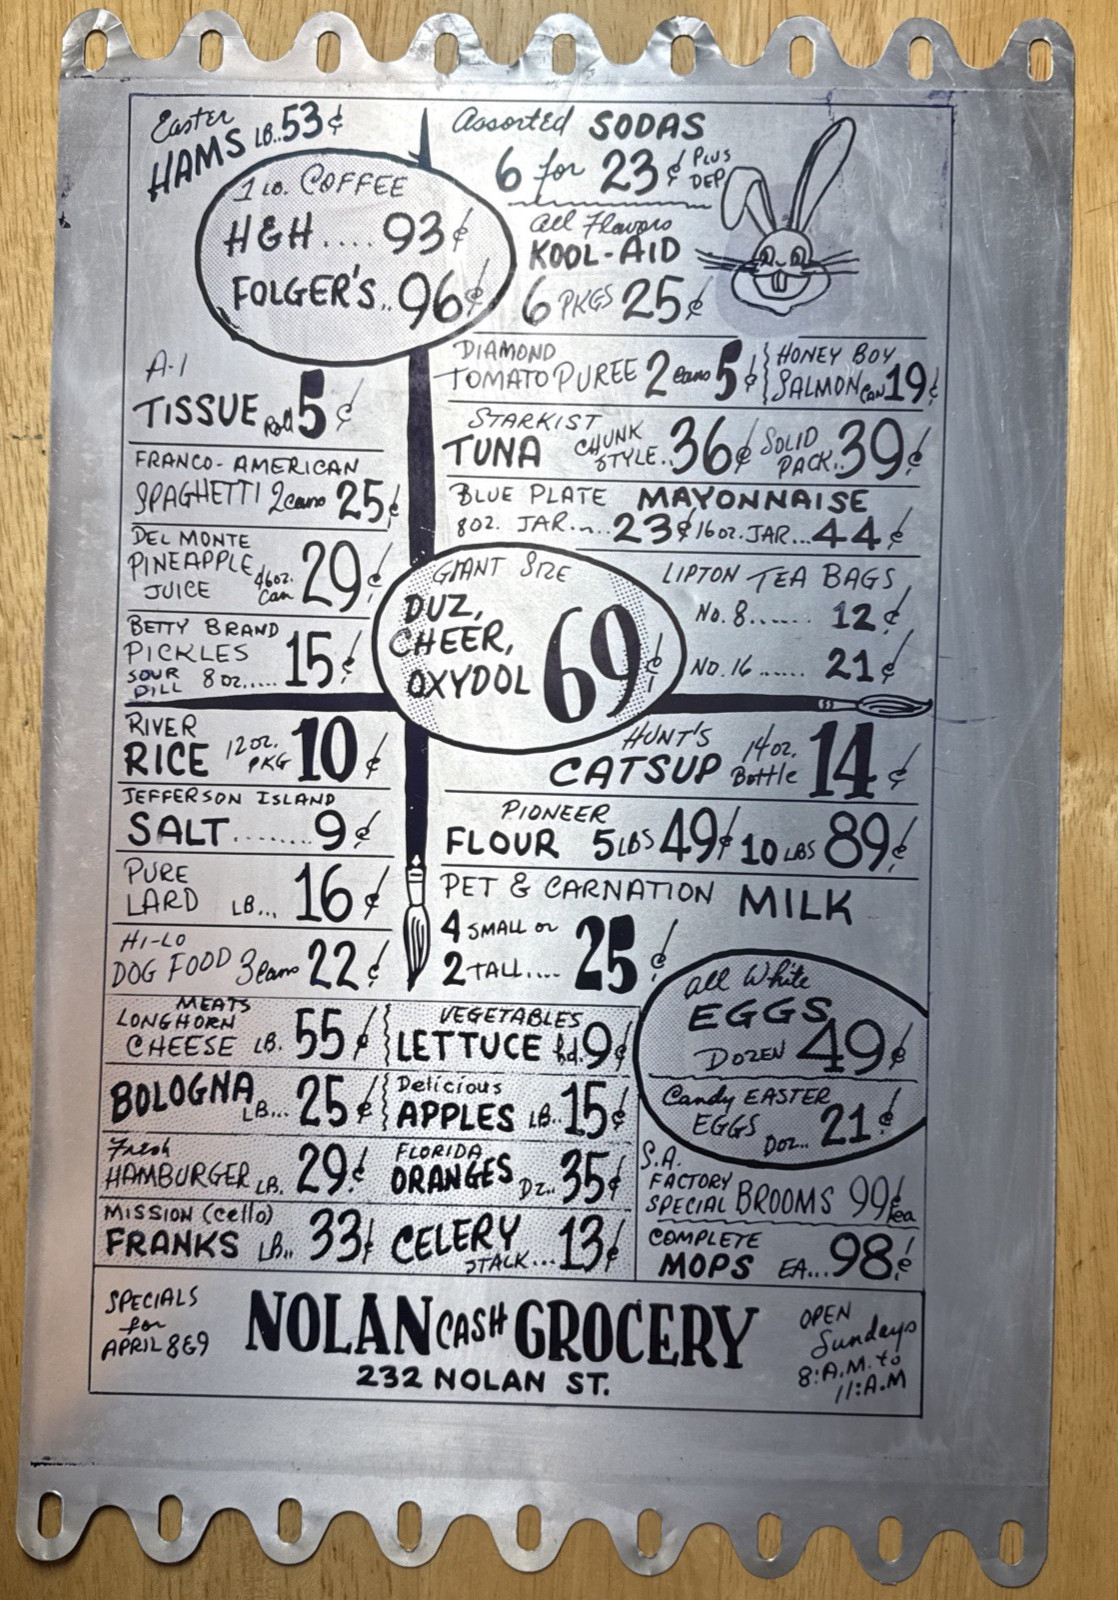 Easter
HAMS LB..53¢
1 LB. COFFEE
H&H....93¢
FOLGER'S..96¢
Assorted SODAS
6 for 23¢ PLUS DEP.
All Flavors
KOOL-AID
6 PKGS 25¢
A-1
TISSUE Roll 5¢
FRANCO-AMERICAN
SPAGHETTI 2 cans 25¢
DEL MONTE
PINEAPPLE
JUICE 46oz. Can 29¢
BETTY BRAND
PICKLES
SOUR
DILL 8 oz..... 15¢
DIAMOND
TOMATO PUREE 2 cans 5¢
HONEY BOY
SALMON CAN 19¢
STARKIST
TUNA CHUNK STYLE..36¢ SOLID PACK..39¢
BLUE PLATE MAYONNAISE
8OZ. JAR....23¢ 16oz. JAR...44¢
GIANT SIZE
DUZ,
CHEER,
OXYDOL 69¢
LIPTON TEA BAGS
No. 8...... 12¢
NO. 16...... 21¢
RIVER
RICE 12oz. PKG 10¢
JEFFERSON ISLAND
SALT........9¢
PURE
LARD LB... 16¢
HI-LO
DOG FOOD 3 cans 22¢
HUNT'S
CATSUP 14oz. Bottle 14¢
PIONEER
FLOUR 5 LBS 49¢ 10 LBS 89¢
PET & CARNATION MILK
4 SMALL or
2 TALL.... 25¢
MEATS
LONGHORN
CHEESE LB. 55¢
BOLOGNA LB... 25¢
Fresh
HAMBURGER LB. 29¢
MISSION (cello)
FRANKS LB.. 33¢
VEGETABLES
LETTUCE hd. 9¢
Delicious
APPLES LB.. 15¢
FLORIDA
ORANGES DZ.. 35¢
CELERY STALK...13¢
All White
EGGS
DOZEN 49¢
Candy EASTER
EGGS DOZ... 21¢
S.A.
FACTORY
SPECIAL BROOMS 99¢ ea
COMPLETE
MOPS EA...98¢
SPECIALS
for
APRIL 8&9
NOLAN CASH GROCERY
232 NOLAN ST.
OPEN
Sundays
8:A.M. to
11:A.M